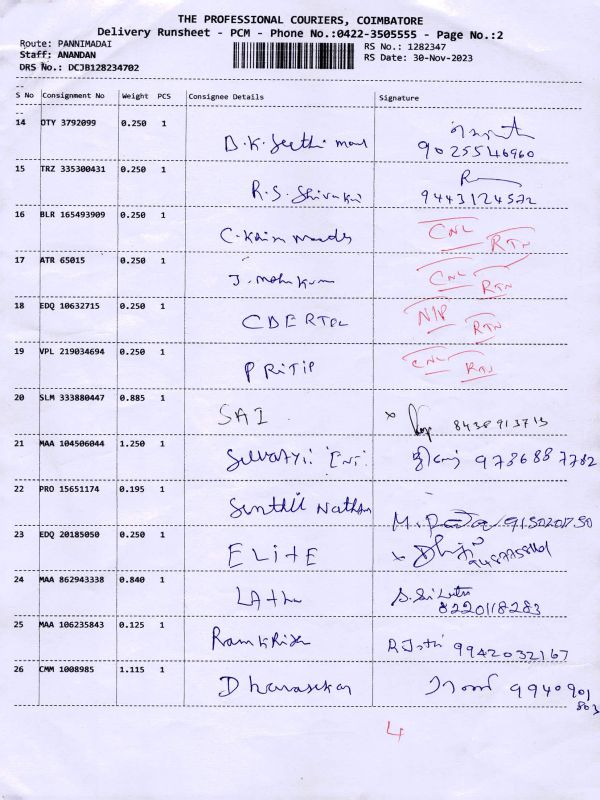 THE PROFESSIONAL COURIERS, COIMBATORE
Delivery Runsheet - PCM - Phone No.:0422-3505555 - Page No.:2
Route: PANNIMADAI
RS No.: 1282347
Staff: ANANDAN
RS Date: 30-Nov-2023
DRS No.: DCJB128234702
S No Consignment No Weight PCS Consignee Details Signature
14 OTY 3792099 0.250 1 D.K.
9025546960
15 TRZ 335300431 0.250 1 R.S.
9443124572
16 BLR 165493909 0.250 1 C. CNL RTN
17 ATR 65015 0.250 1 J. CNL RTN
18 EDQ 10632715 0.250 1 RTN
19 VPL 219034694 0.250 1 PRITIP CNL RTN
20 SLM 333880447 0.885 1 SAI x
21 MAA 104506044 1.250 1
22 PRO 15651174 0.195 1 Senthil Nathan M.
23 EDQ 20185050 0.250 1 ELitE x
24 MAA 862943338 0.840 1 LAtha
8220118283
25 MAA 106235843 0.125 1 9942032167
26 CMM 1008985 1.115 1 Dhanasekar 9940901
803
4